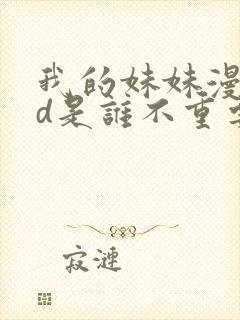 我的妹妹漫
d是誰不重要
寂漣